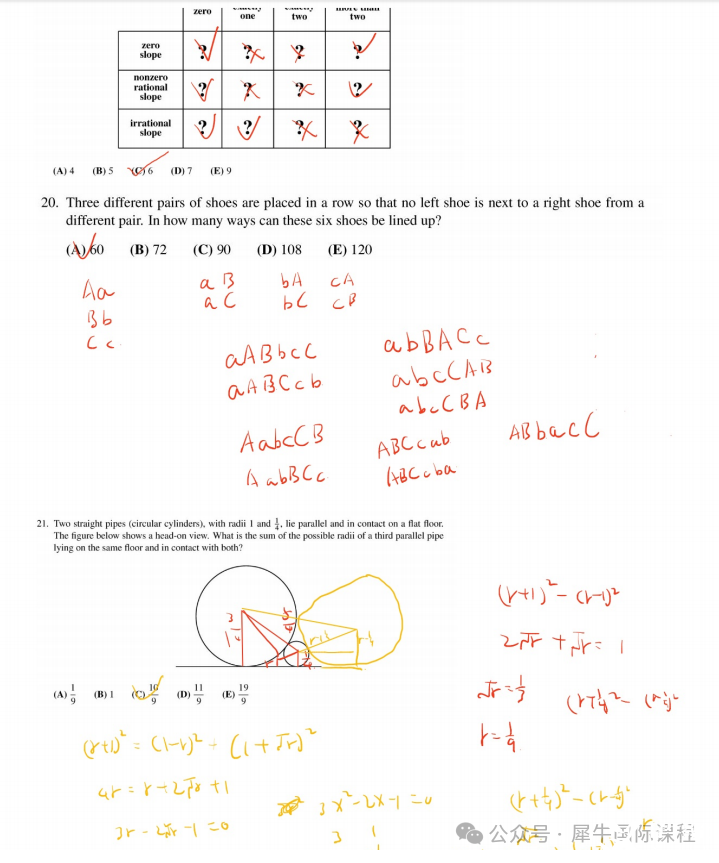 zero
one
two
two
zero
slope
? ? ? ?
nonzero
rational
slope
? ? ? ?
irrational
slope
? ? ? ?
(A) 4 (B) 5 (C) 6 (D) 7 (E) 9
20. Three different pairs of shoes are placed in a row so that no left shoe is next to a right shoe from a
different pair. In how many ways can these six shoes be lined up?
(A) 60 (B) 72 (C) 90 (D) 108 (E) 120
Aa
Bb
Cc
aB bA cA
aC bC cB
aABbcC
aABCcb
abBACc
abcCAB
abcCBA
AabcCB
AabBCc
ABCcab
ABCcba
ABbacC
21. Two straight pipes (circular cylinders), with radii 1 and 1/4, lie parallel and in contact on a flat floor.
The figure below shows a head-on view. What is the sum of the possible radii of a third parallel pipe
lying on the same floor and in contact with both?
3/4
1
5/4
r+1
r-1
1/4
(A) 1/9 (B) 1 (C) 10/9 (D) 11/9 (E) 19/9
(r+1)² - (r-1)²
2√r + √r = 1
√r = 1/3
r = 1/9
(r+1/4)² - (r-1/4)²
(r+1)² = (1-r)² + (1+√r)²
4r = r+2√r+1
3r - 2√r - 1 = 0
3x²-2x-1=0
3 1
(r+1/4)² - (r-1/4)²
公众号 · 犀牛国际课程